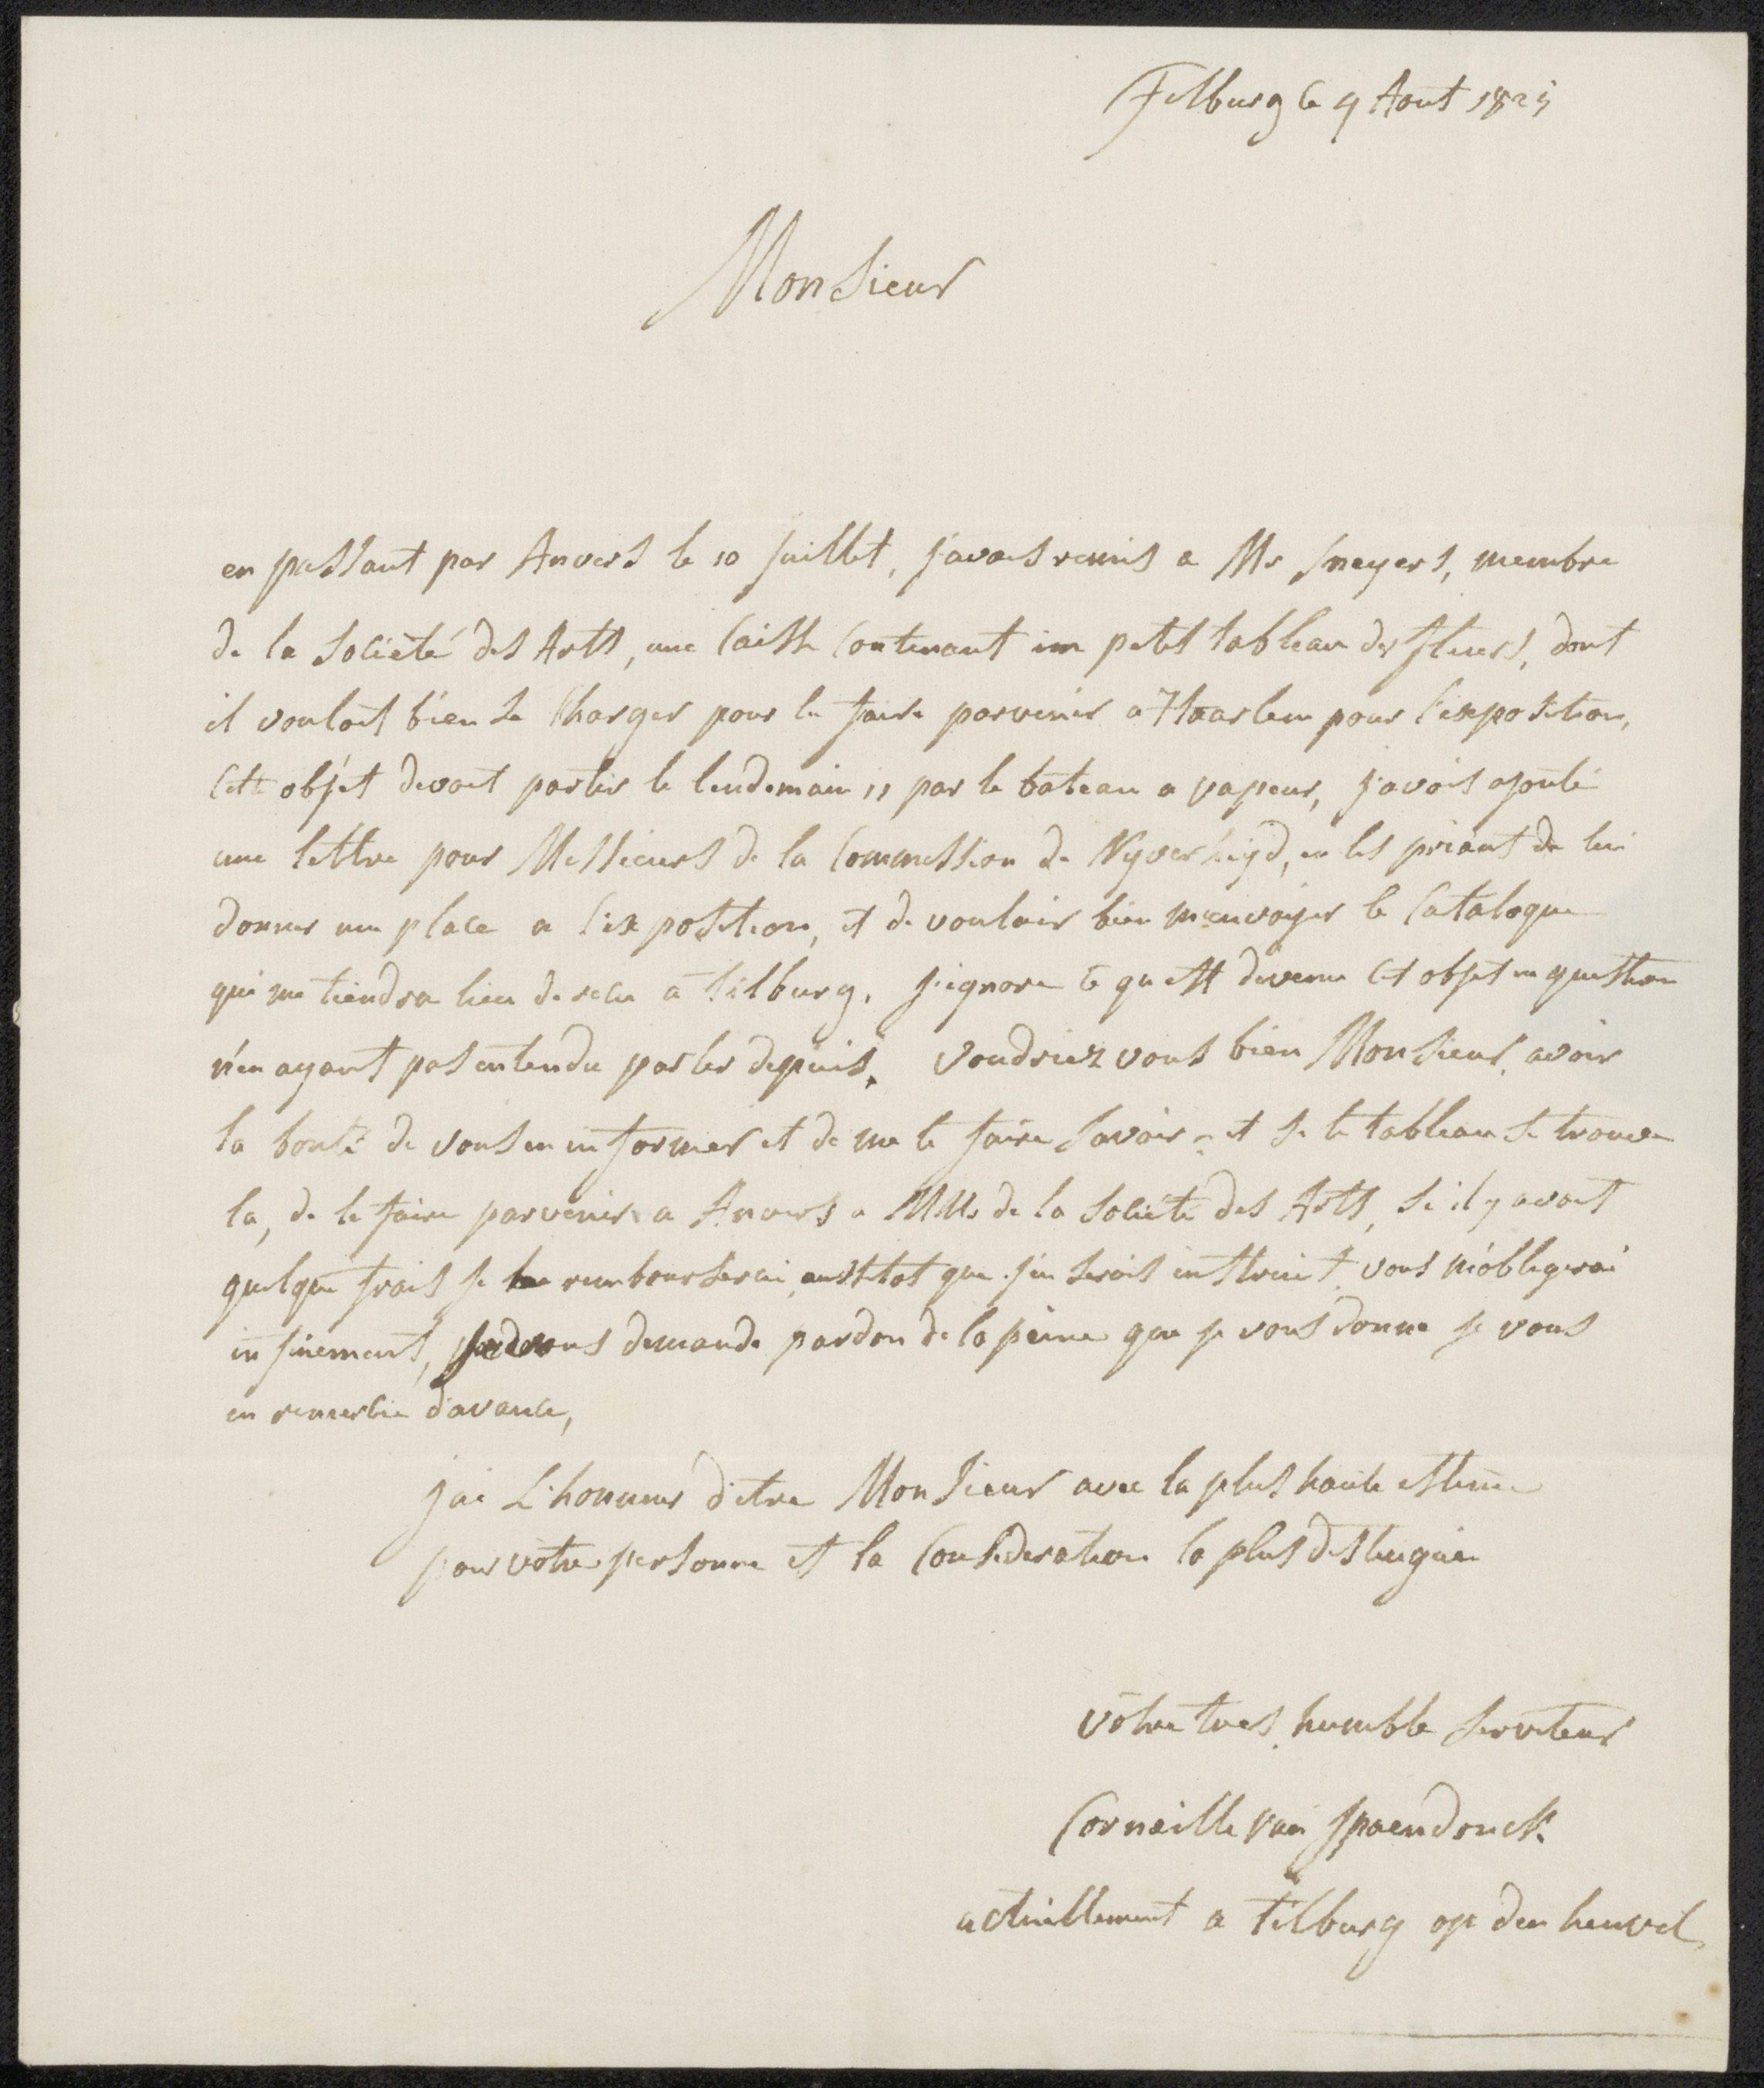 Tilburg le 9 Aout 1825
Monsieur
en passant par Anvers le 10 juillet, j'avais remis a Mr Sneyers, membre
de la Societé des Arts, une Caisse Contenant un petit tableau des fleurs, dont
il vouloit bien se Charger pour le faire parvenir a Haarlem pour l'exposition,
Cett objet devoit partir le lendemain 11 par le bateau a vapeur, j'avois ajouté
une lettre pour Messieurs de la Commission de Nyverheyd, en les priant de lui
donner une place a l'exposition, et de vouloir bien m'envoyer le Catalogue
qui me tiendra lieu de recu a tilburg. j'ignore ce qu'est devenu Cet objet en question
n'en ayant pas entendu parler depuis. Voudriez vous bien Monsieur, avoir
la bonté de vous en informer et de me le faire savoir, et si le tableau se trouve
la, de le faire parvenir a Anvers a MMs de la Societé des Arts, si il y avoit
quelque frais je le rembourserai, ausitot que j'en serois instruit, vous m'obligerai
infinement, je vous demande pardon de la peine que je vous donne je vous
en remercie d'avance,
jai L'honneur d'etre Monsieur avec la plus haute estime
pour votre personne et la Consideration la plus distinguée
vôtre tres humble serviteur
Corneille van Spaendonck
actuellement a tilburg op den heuvel